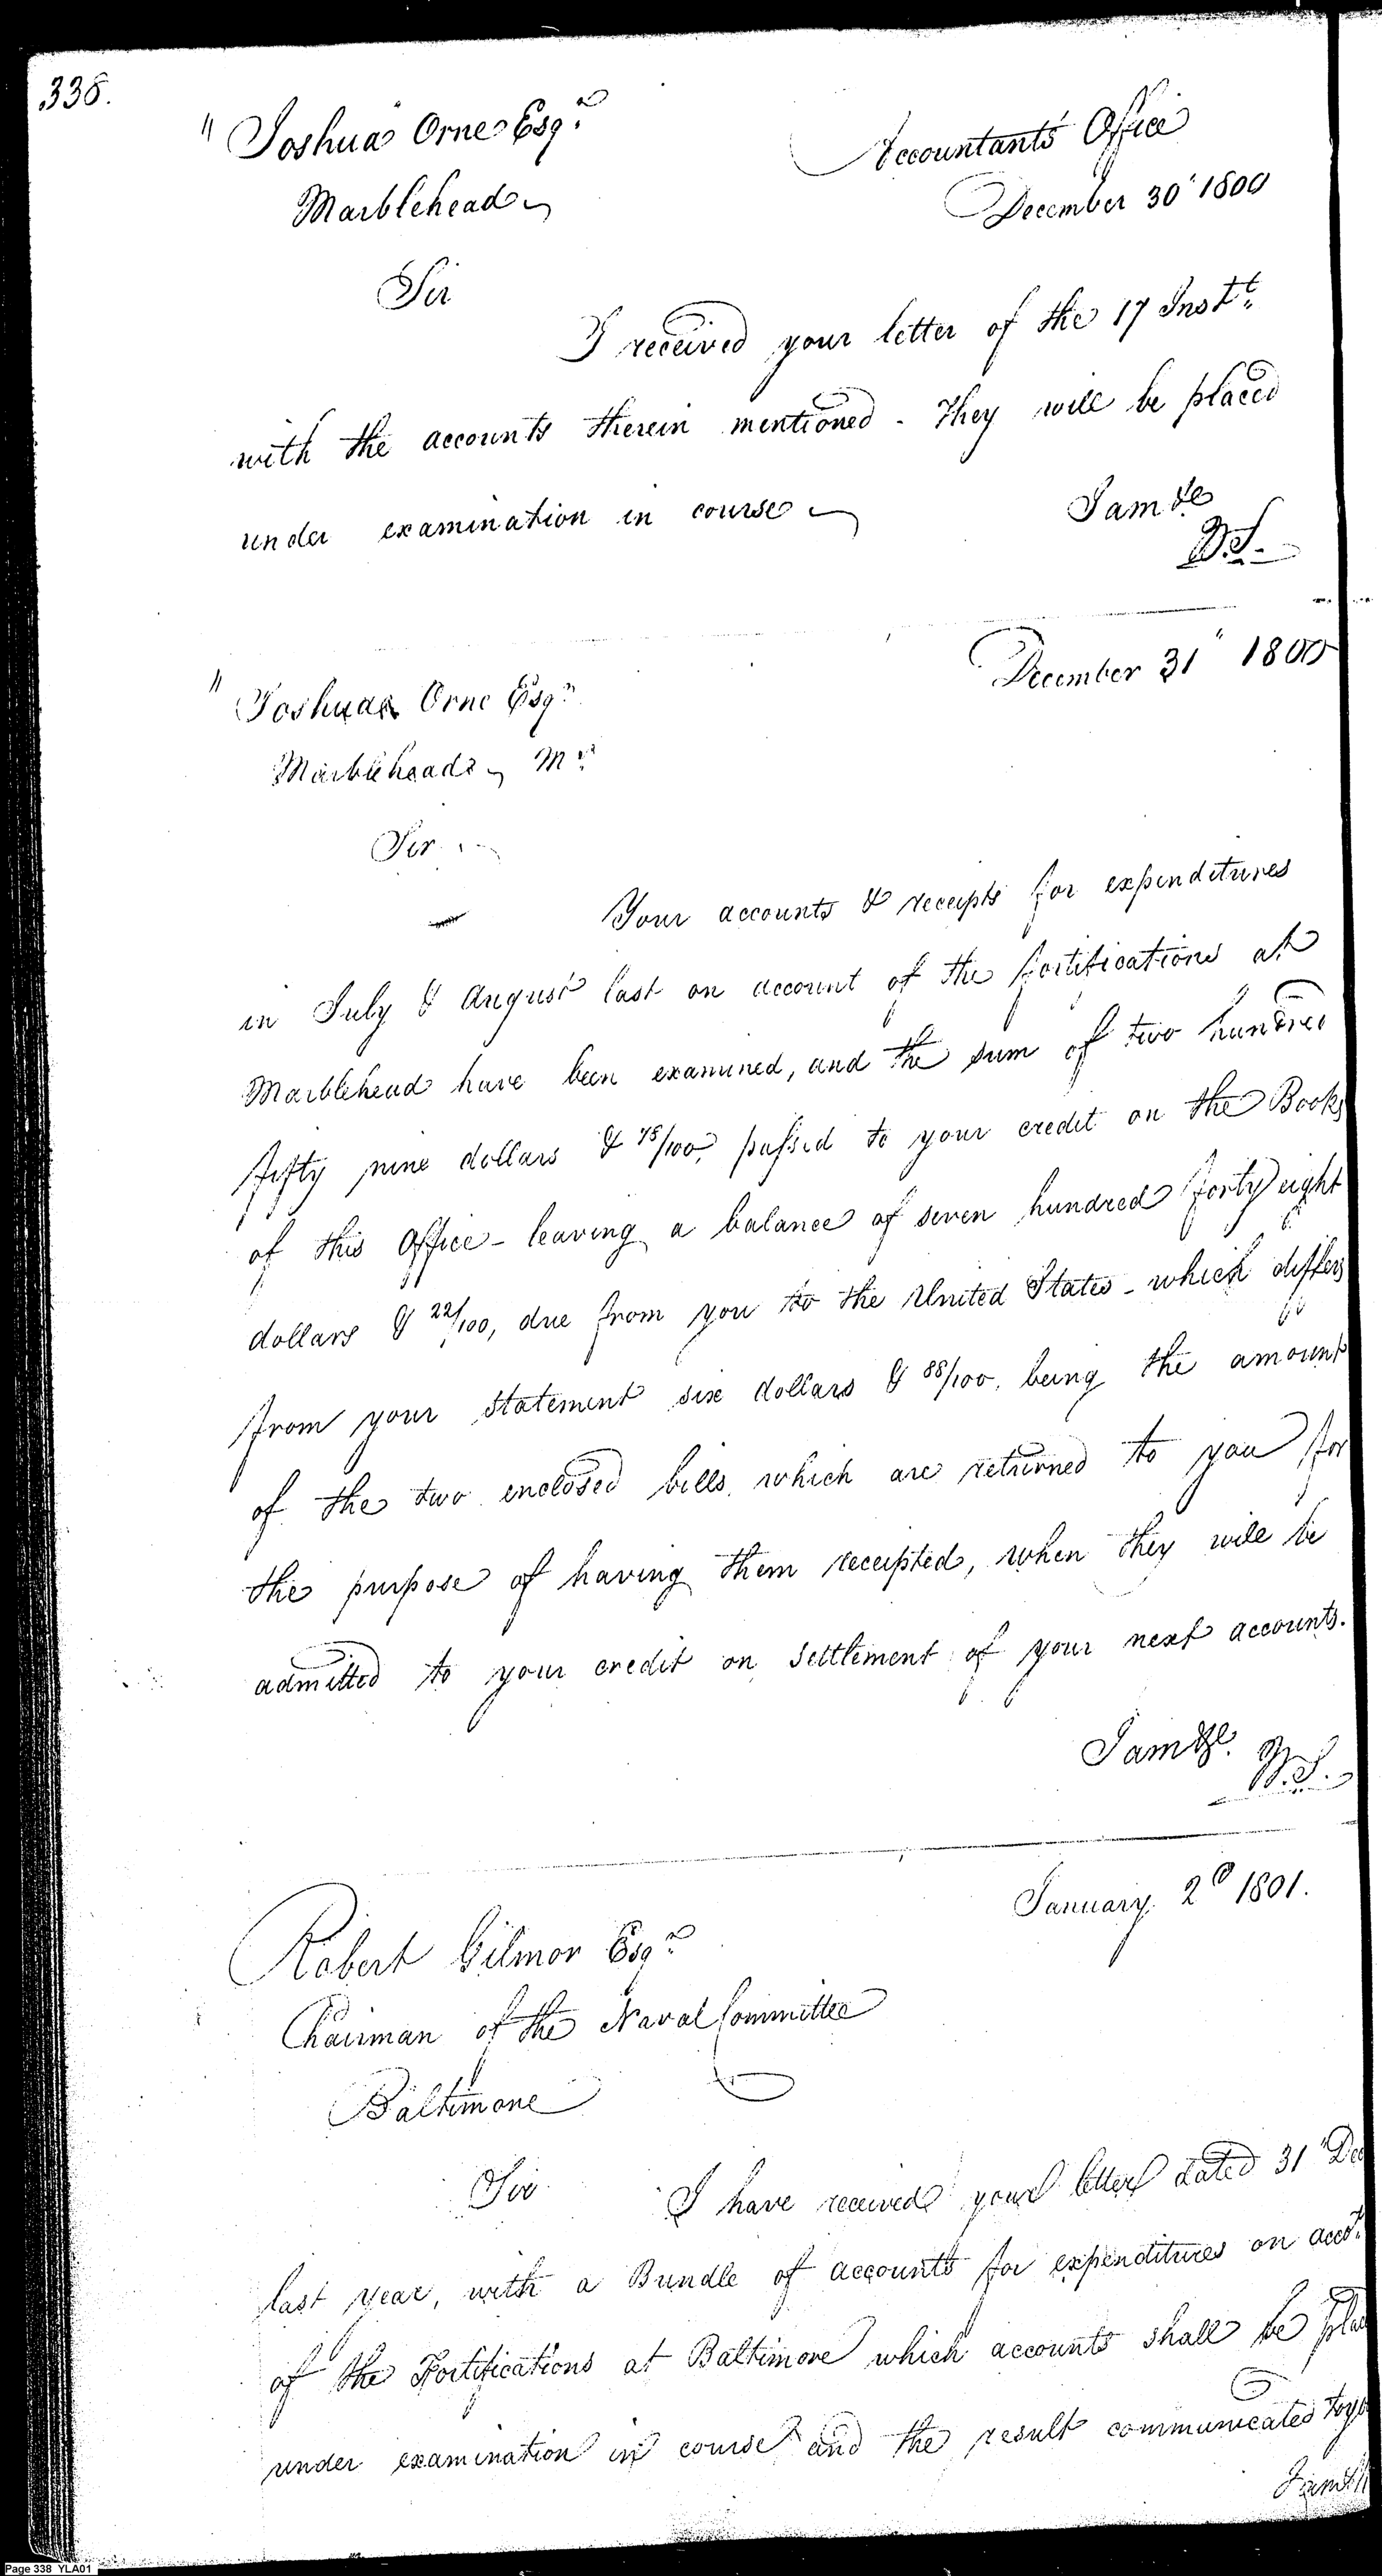 338.
" Joshua Orne Esqr.
Accountants Office
Marblehead
December 30" 1800
Sir
I received your letter of the 17 Instt.
with the accounts therein mentioned - They will be placed
under examination in course
I am &c
W.S.
December 31" 1800
" Joshua Orne Esqr.
Marblehead Ms.
Sir
Your accounts & receipts for expenditures
in July & August last on account of the fortifications at
Marblehead have been examined, and the sum of two hundred
fifty nine dollars & 75/100, passed to your credit on the Books
of this Office - leaving a balance of seven hundred forty eight
dollars & 22/100, due from you to the United States - which differs
from your statement six dollars & 88/100, being the amount
of the two enclosed bills, which are returned to you for
the purpose of having them receipted, when they will be
admitted to your credit on settlement of your next accounts.
I am &c.
W.S.
January 2d 1801.
Robert Gilmor Esqr.
Chairman of the Naval Committee
Baltimore
Sir I have received your letter dated 31" Dec
last year, with a Bundle of accounts for expenditures on accot.
of the Fortifications at Baltimore which accounts shall be pla
under examination in course and the result communicated to yo
I am &
Page 338 YLA01